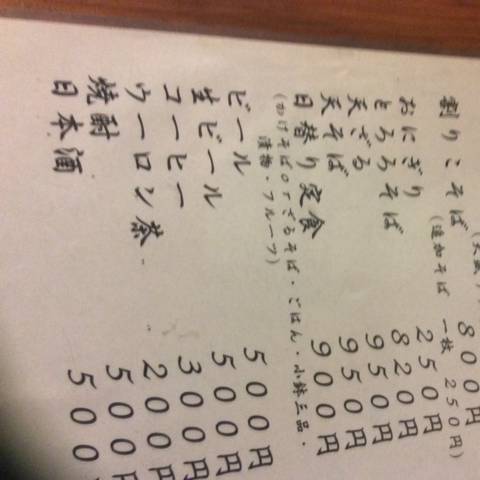 割りこそば 800円
(追加そば 一枚 250円)
おにぎり 250円
とろろそば 820円
天ざる 950円
天そば 950円
日替り定食 900円
(かけそばorざるそば・ごはん・小鉢三品・
漬物・フルーツ)
ビール 500円
生ビール 500円
コーヒー 300円
ウーロン茶 200円
焼酎 500円
日本酒 500